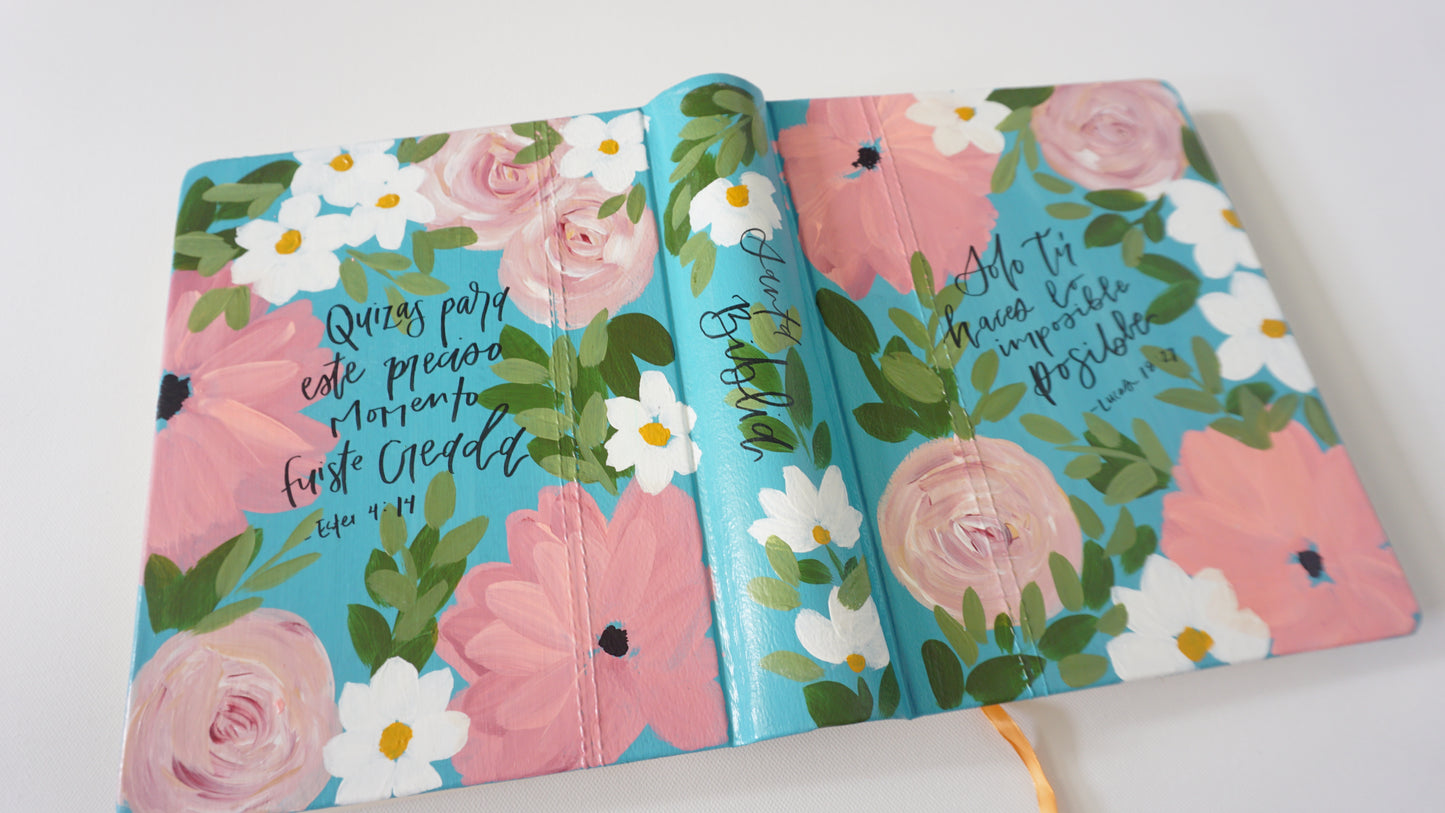 Quizas para
este preciso
Momento
fuiste Creada
- Ester 4:14
Santa
Biblia
Solo tú
haces lo
imposible
posible
- Lucas 18:27